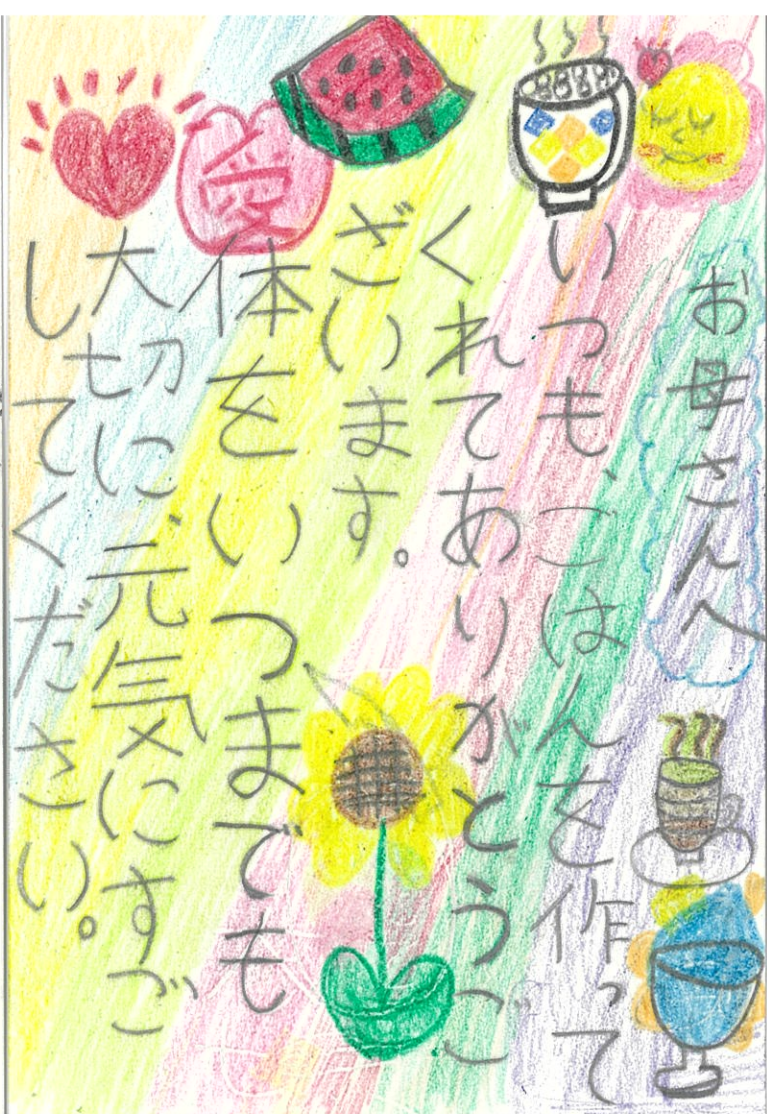 お母さんへ
いつも、ごはんを作って
くれてありがとうご
ざいます。
体をいつまでも
大切に元気にすご
してください。
愛